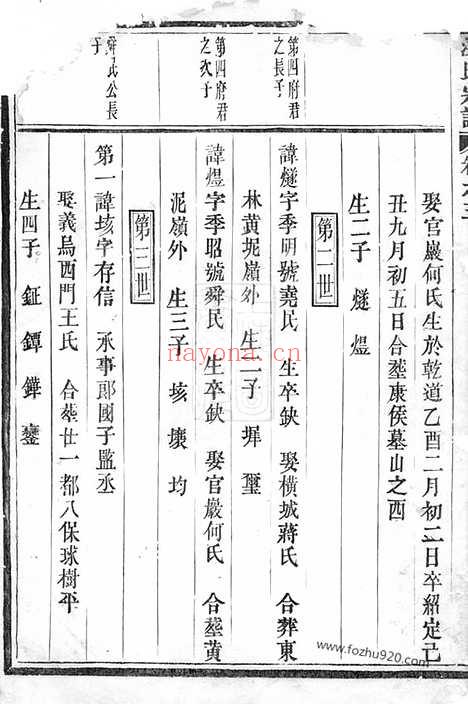 氏宗譜
娶官巖何氏生於乾道乙酉二月初二日卒紹定己
丑九月初五日合塟康侯墓山之西
生二子 燧 煜
第二世
第四府君
之長子
諱燧字季明號堯民 生卒缺 娶橫城蔣氏 合葬東
林黄坭嶺外 生二子 墀 璽
第四府君
之次子
諱煜字季昭號舜民 生卒缺 娶官巖何氏 合塟黄
泥嶺外 生三子 垓 壤 均
第三世
舜民公長
子
第一諱垓字存信 承事郎國子監丞
娶義烏西門王氏 合塟廿一都八保球樹平
生四子 鉦 鐔 鏵 鑾
nayona.cn
www.fozhu920.com